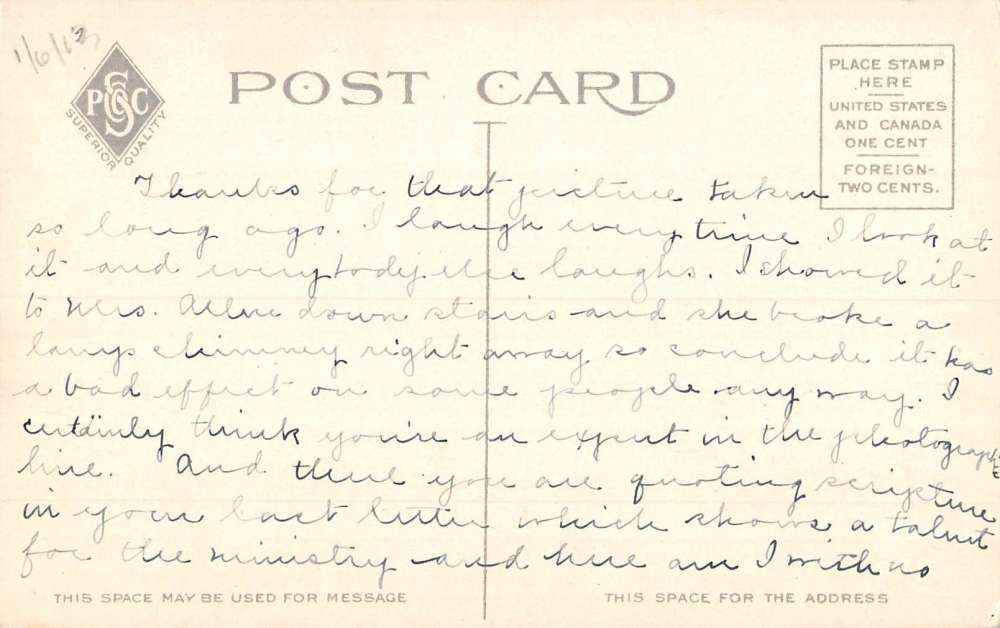 1/6/13
PSCO
SUPERIOR QUALITY
POST CARD
PLACE STAMP
HERE
UNITED STATES
AND CANADA
ONE CENT
FOREIGN-
TWO CENTS.
Thanks for that picture taken
so long ago. I laugh every time I look at
it and everybody else laughs. I showed it
to Mrs. Allen down stairs and she broke a
lamp chimney right away so conclude it has
a bad effect on some people any way. I
certainly think you're an expert in the photographic
line. And then you are quoting scripture
in your last letter which shows a talent
for the ministry and here am I with no
THIS SPACE MAY BE USED FOR MESSAGE
THIS SPACE FOR THE ADDRESS